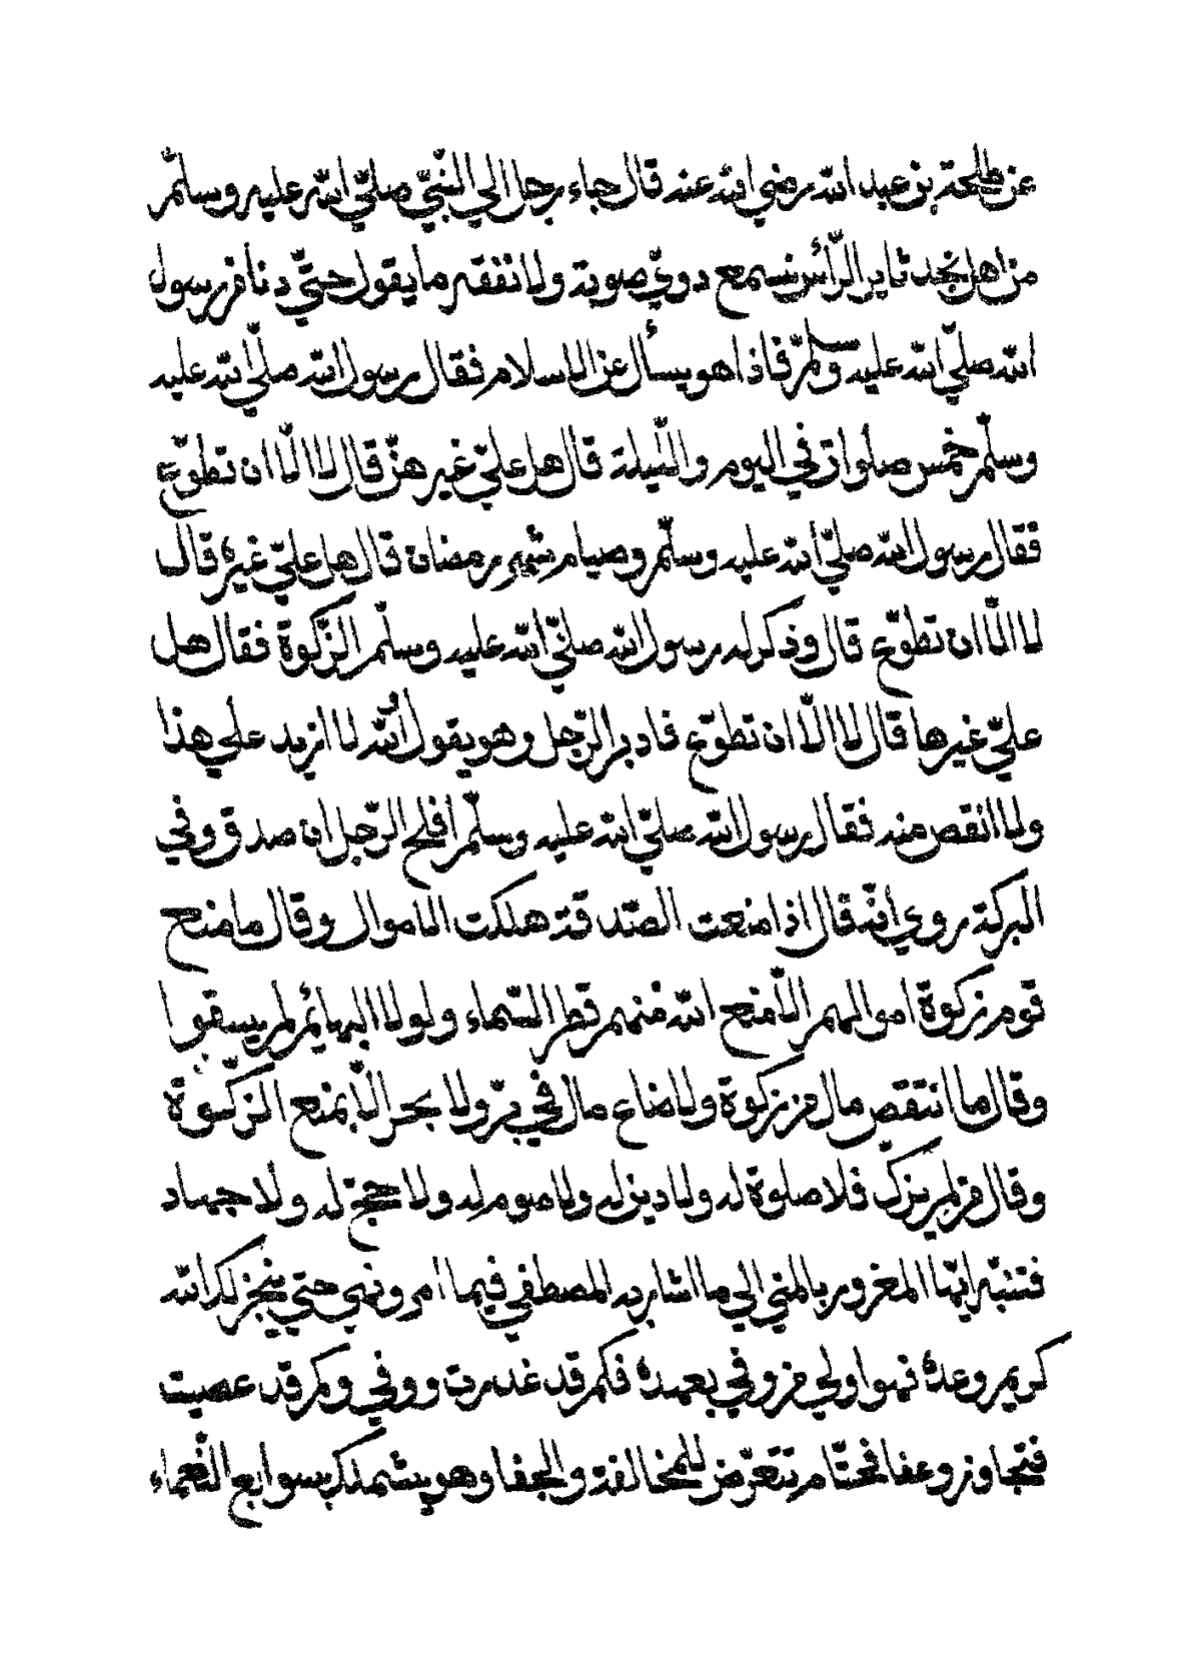 عن طلحة بن عبد الله رضي الله عنه قال جاء رجل الي النّبيّ صلّي الله عليه وسلّم
من اهل نجد ثاير الرّأس نسمع دويّ صوته ولا نفقه ما يقول حتيّ دنا من رسول
الله صلّي الله عليه وسلّم فاذا هو يسأل عن الاسلام فقال رسول الله صلّي الله عليه
وسلّم خمس صلوات في اليوم واللّيلة قال هل عليّ غير هنّ قال لا الّا ان تطوّع
فقال رسول الله صلّي الله عليه وسلّم وصيام شهر رمضان قال هل عليّ غيره قال
لا الّا ان تطوّع قال وذكر له رسول الله صلّي الله عليه وسلّم الزّكوة فقال هل
عليّ غيرها قال لا الّا ان تطوّع فادبر الرّجل وهو يقول والله لا ازيد علي هذا
ولا انقص منه فقال رسول الله صلّي الله عليه وسلّم افلح الرّجل ان صدق وفي
البركة روي انّه قال اذا منعت الصّدقة هلكت الاموال وقال ما منح
قوم زكوة اموالهم الّا منح الله منهم قطر السّماء ولولا البهائم لم يسقوا
وقال ما انتقص مال من زكوة ولا ضاع مال في برّ ولا بحر الّا بمنع الزّكوة
وقال من لم يزك فلا صلوة له ولا دين له ولا صوم له ولا حجّ له ولا جهاد
فتنبّه ايّها المغرور بالمني الي ما اشار به المصطفي فيما امر ونهي حتي ينجز لك الله
كريم وعده فهو اولي من وفي بعهده فكم قد غدرت ووفي وكم قد عصيت
فتجاوز وعفا فحتّام تتعرّض للمخالفة والجفا وهو يشملك بسوابع النّعماء